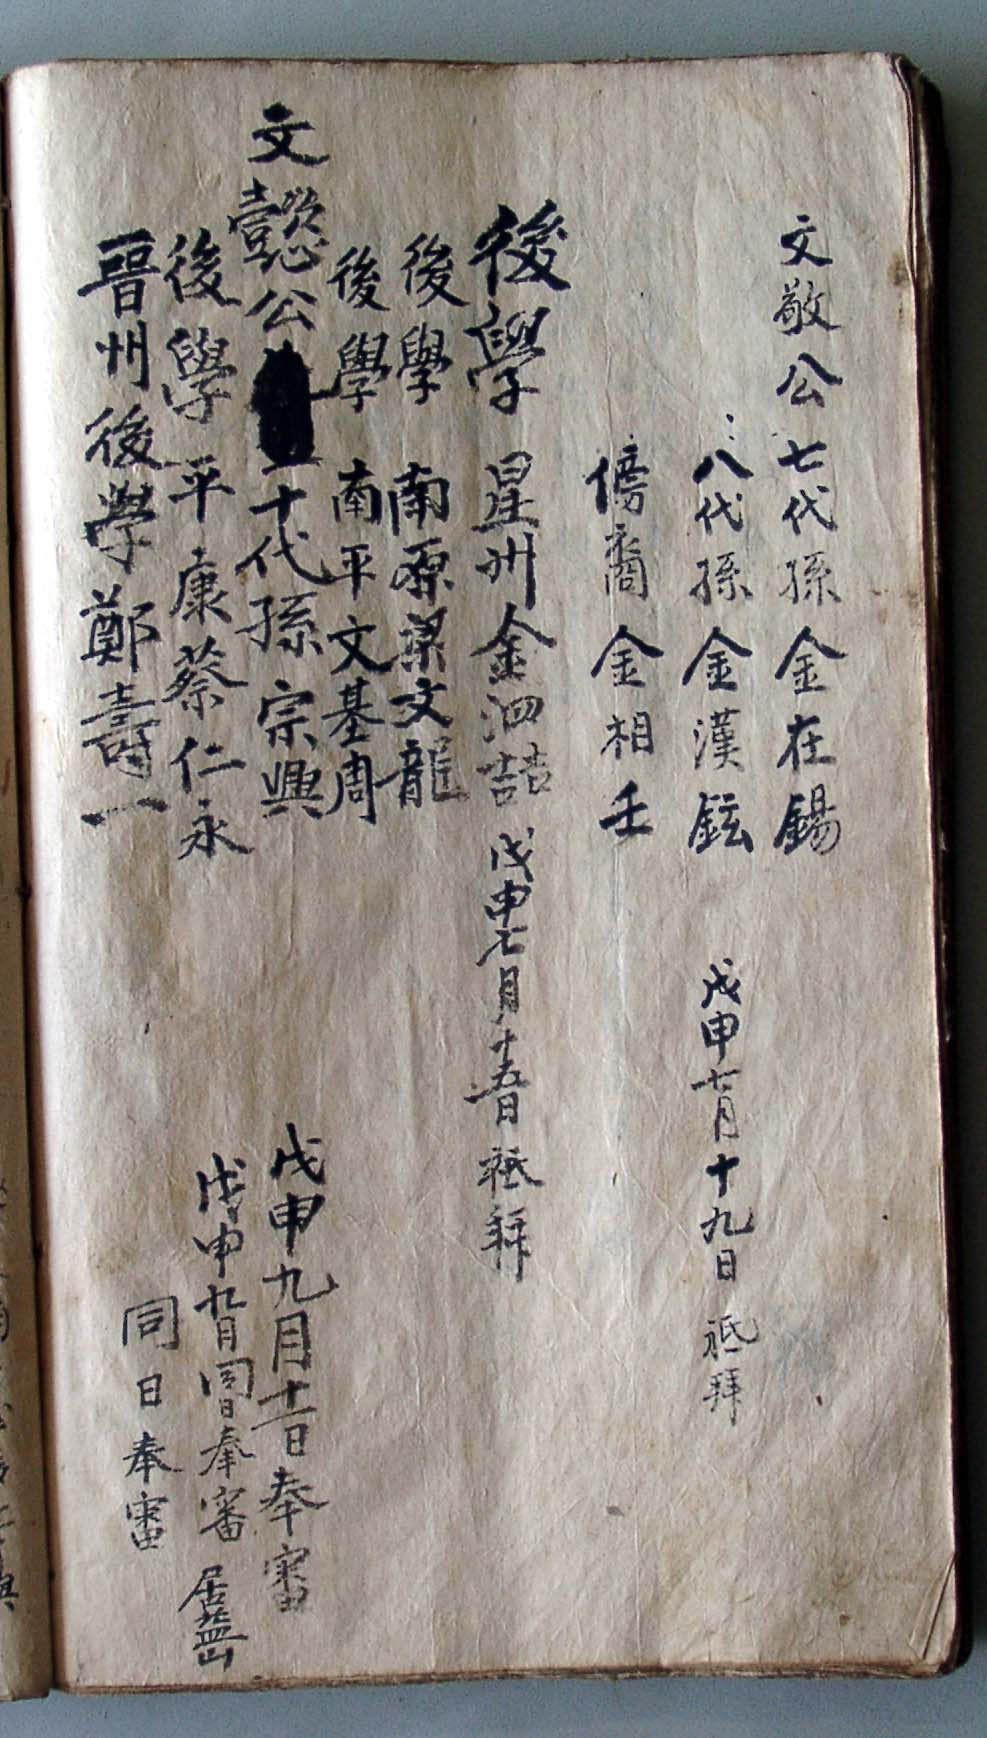 文敬公七代孫 金在鍚
八代孫 金漢鉉 戊申七月十九日 祗拜
傍裔 金相壬
後學 星州金泗喆 戊申七月十五日 祗拜
後學 南原梁文龍
後學 南平文基周
文懿公 十代孫 宗興 戊申九月十二日奉審
後學 平康蔡仁永 戊申九月同日奉審 居益山
晉州後學鄭壽一 同日奉審